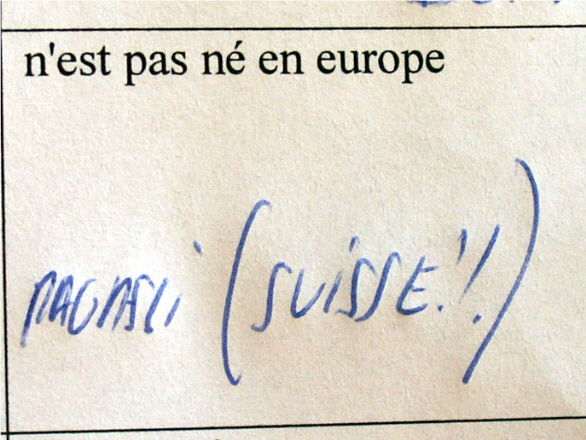 n'est pas né en europe
MAGNSLi (SUiSSE!!)